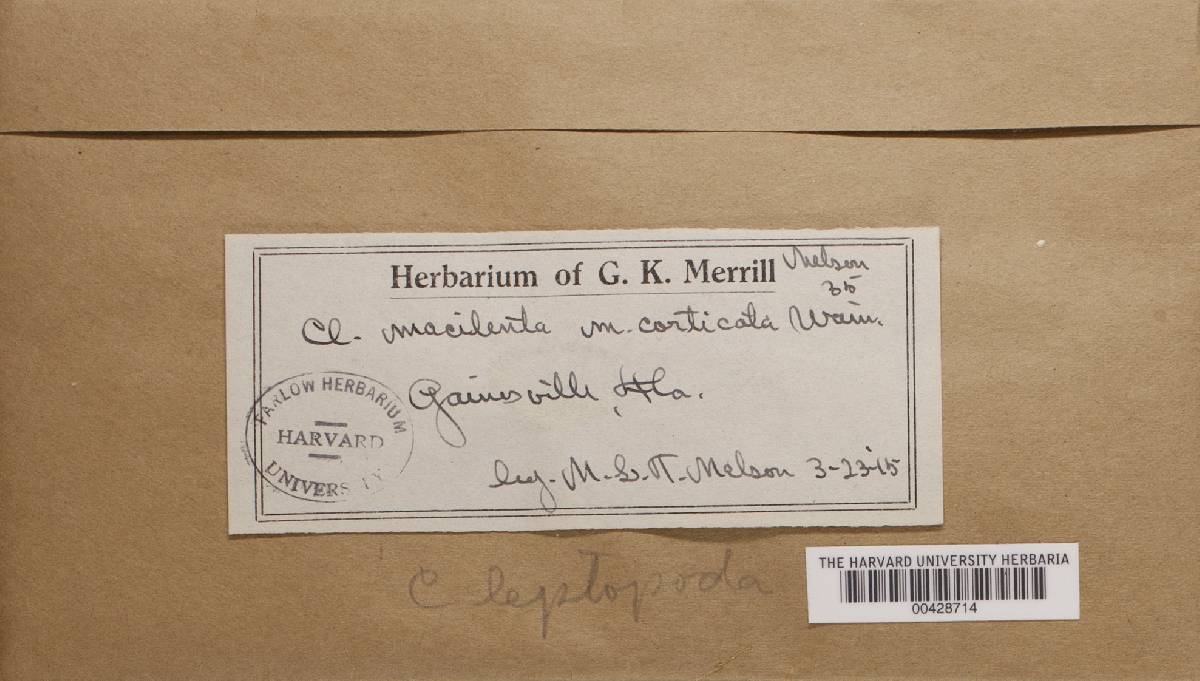 Herbarium of G. K. Merrill Nelson
35
Cl. macilenta m. corticata Wain.
Gainesville, Fla.
FARLOW HERBARIUM
HARVARD
UNIVERSITY
leg. N. L. T. Nelson 3-23-15
C leptopoda
THE HARVARD UNIVERSITY HERBARIA
00428714